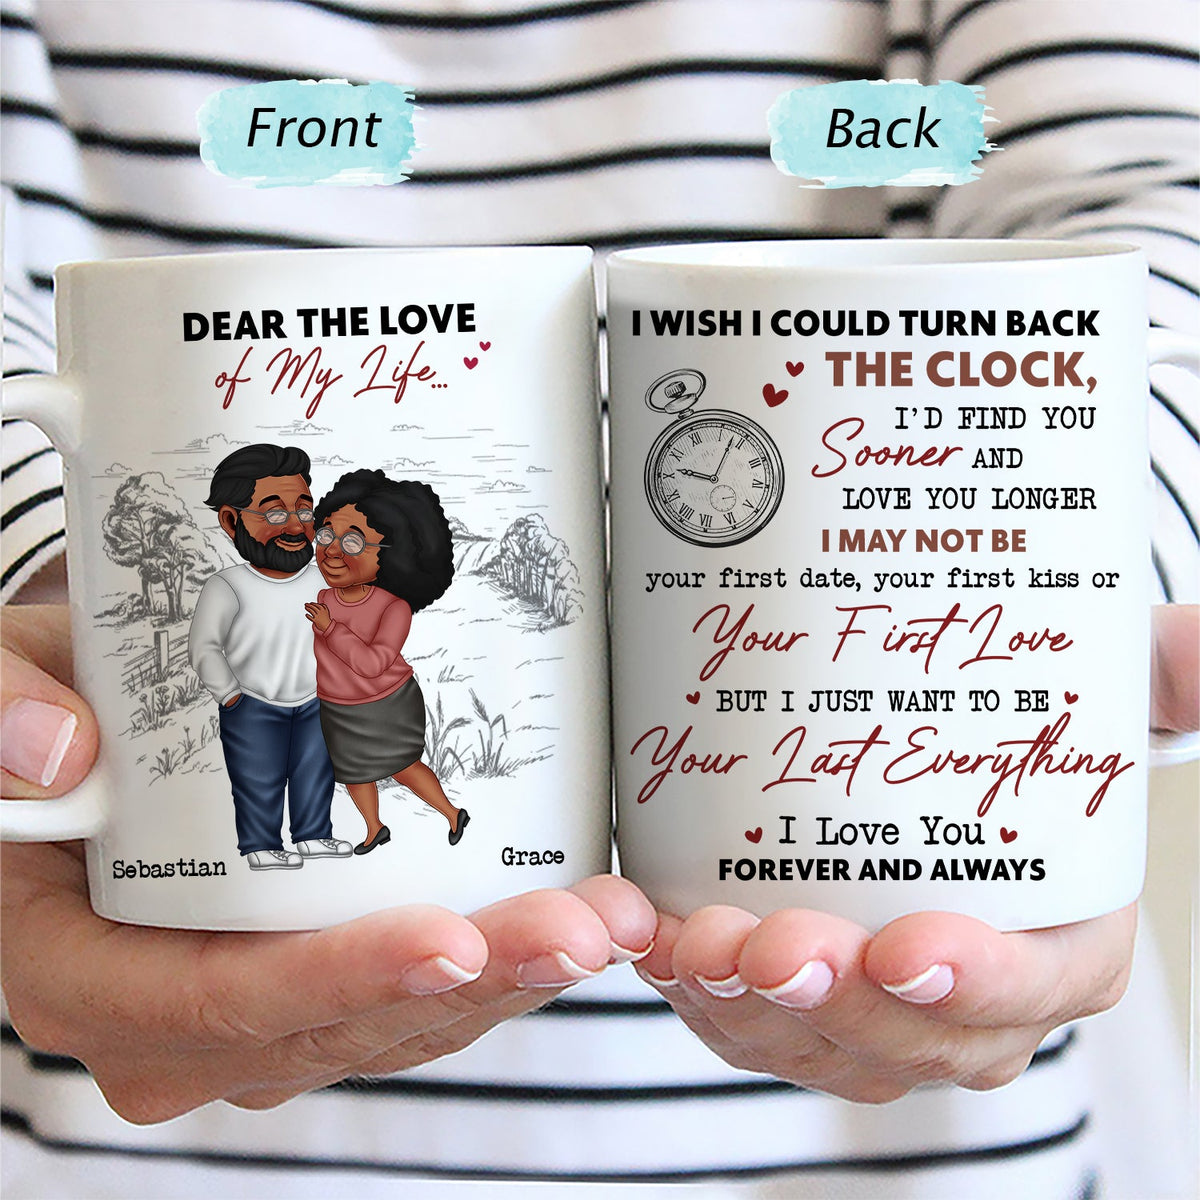 Front
Back
DEAR THE LOVE
of My Life...
Sebastian
Grace
I WISH I COULD TURN BACK
THE CLOCK,
I'D FIND YOU
Sooner AND
LOVE YOU LONGER
I MAY NOT BE
your first date, your first kiss or
Your First Love
BUT I JUST WANT TO BE
Your Last Everything
I Love You
FOREVER AND ALWAYS